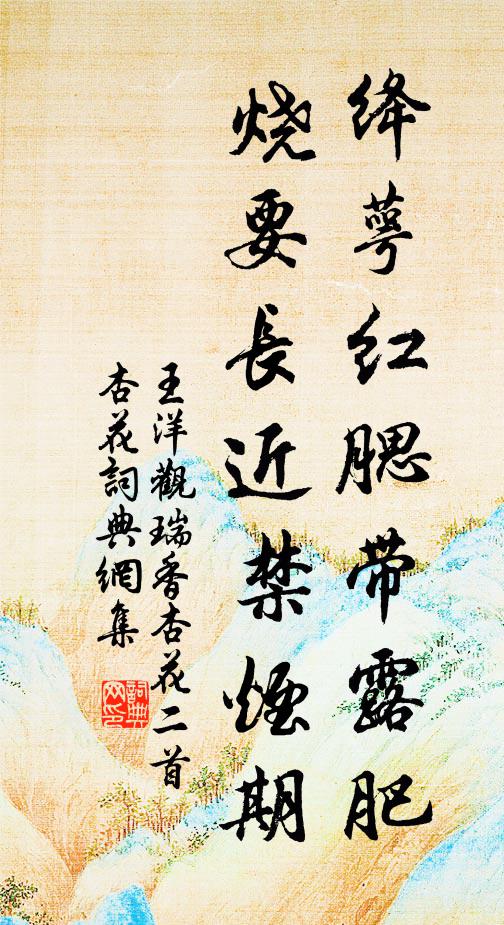 绛萼红腮带露肥
烧要長近禁煙期
王洋觀瑞香杏花二首
杏花詞典網集
詞典
网印